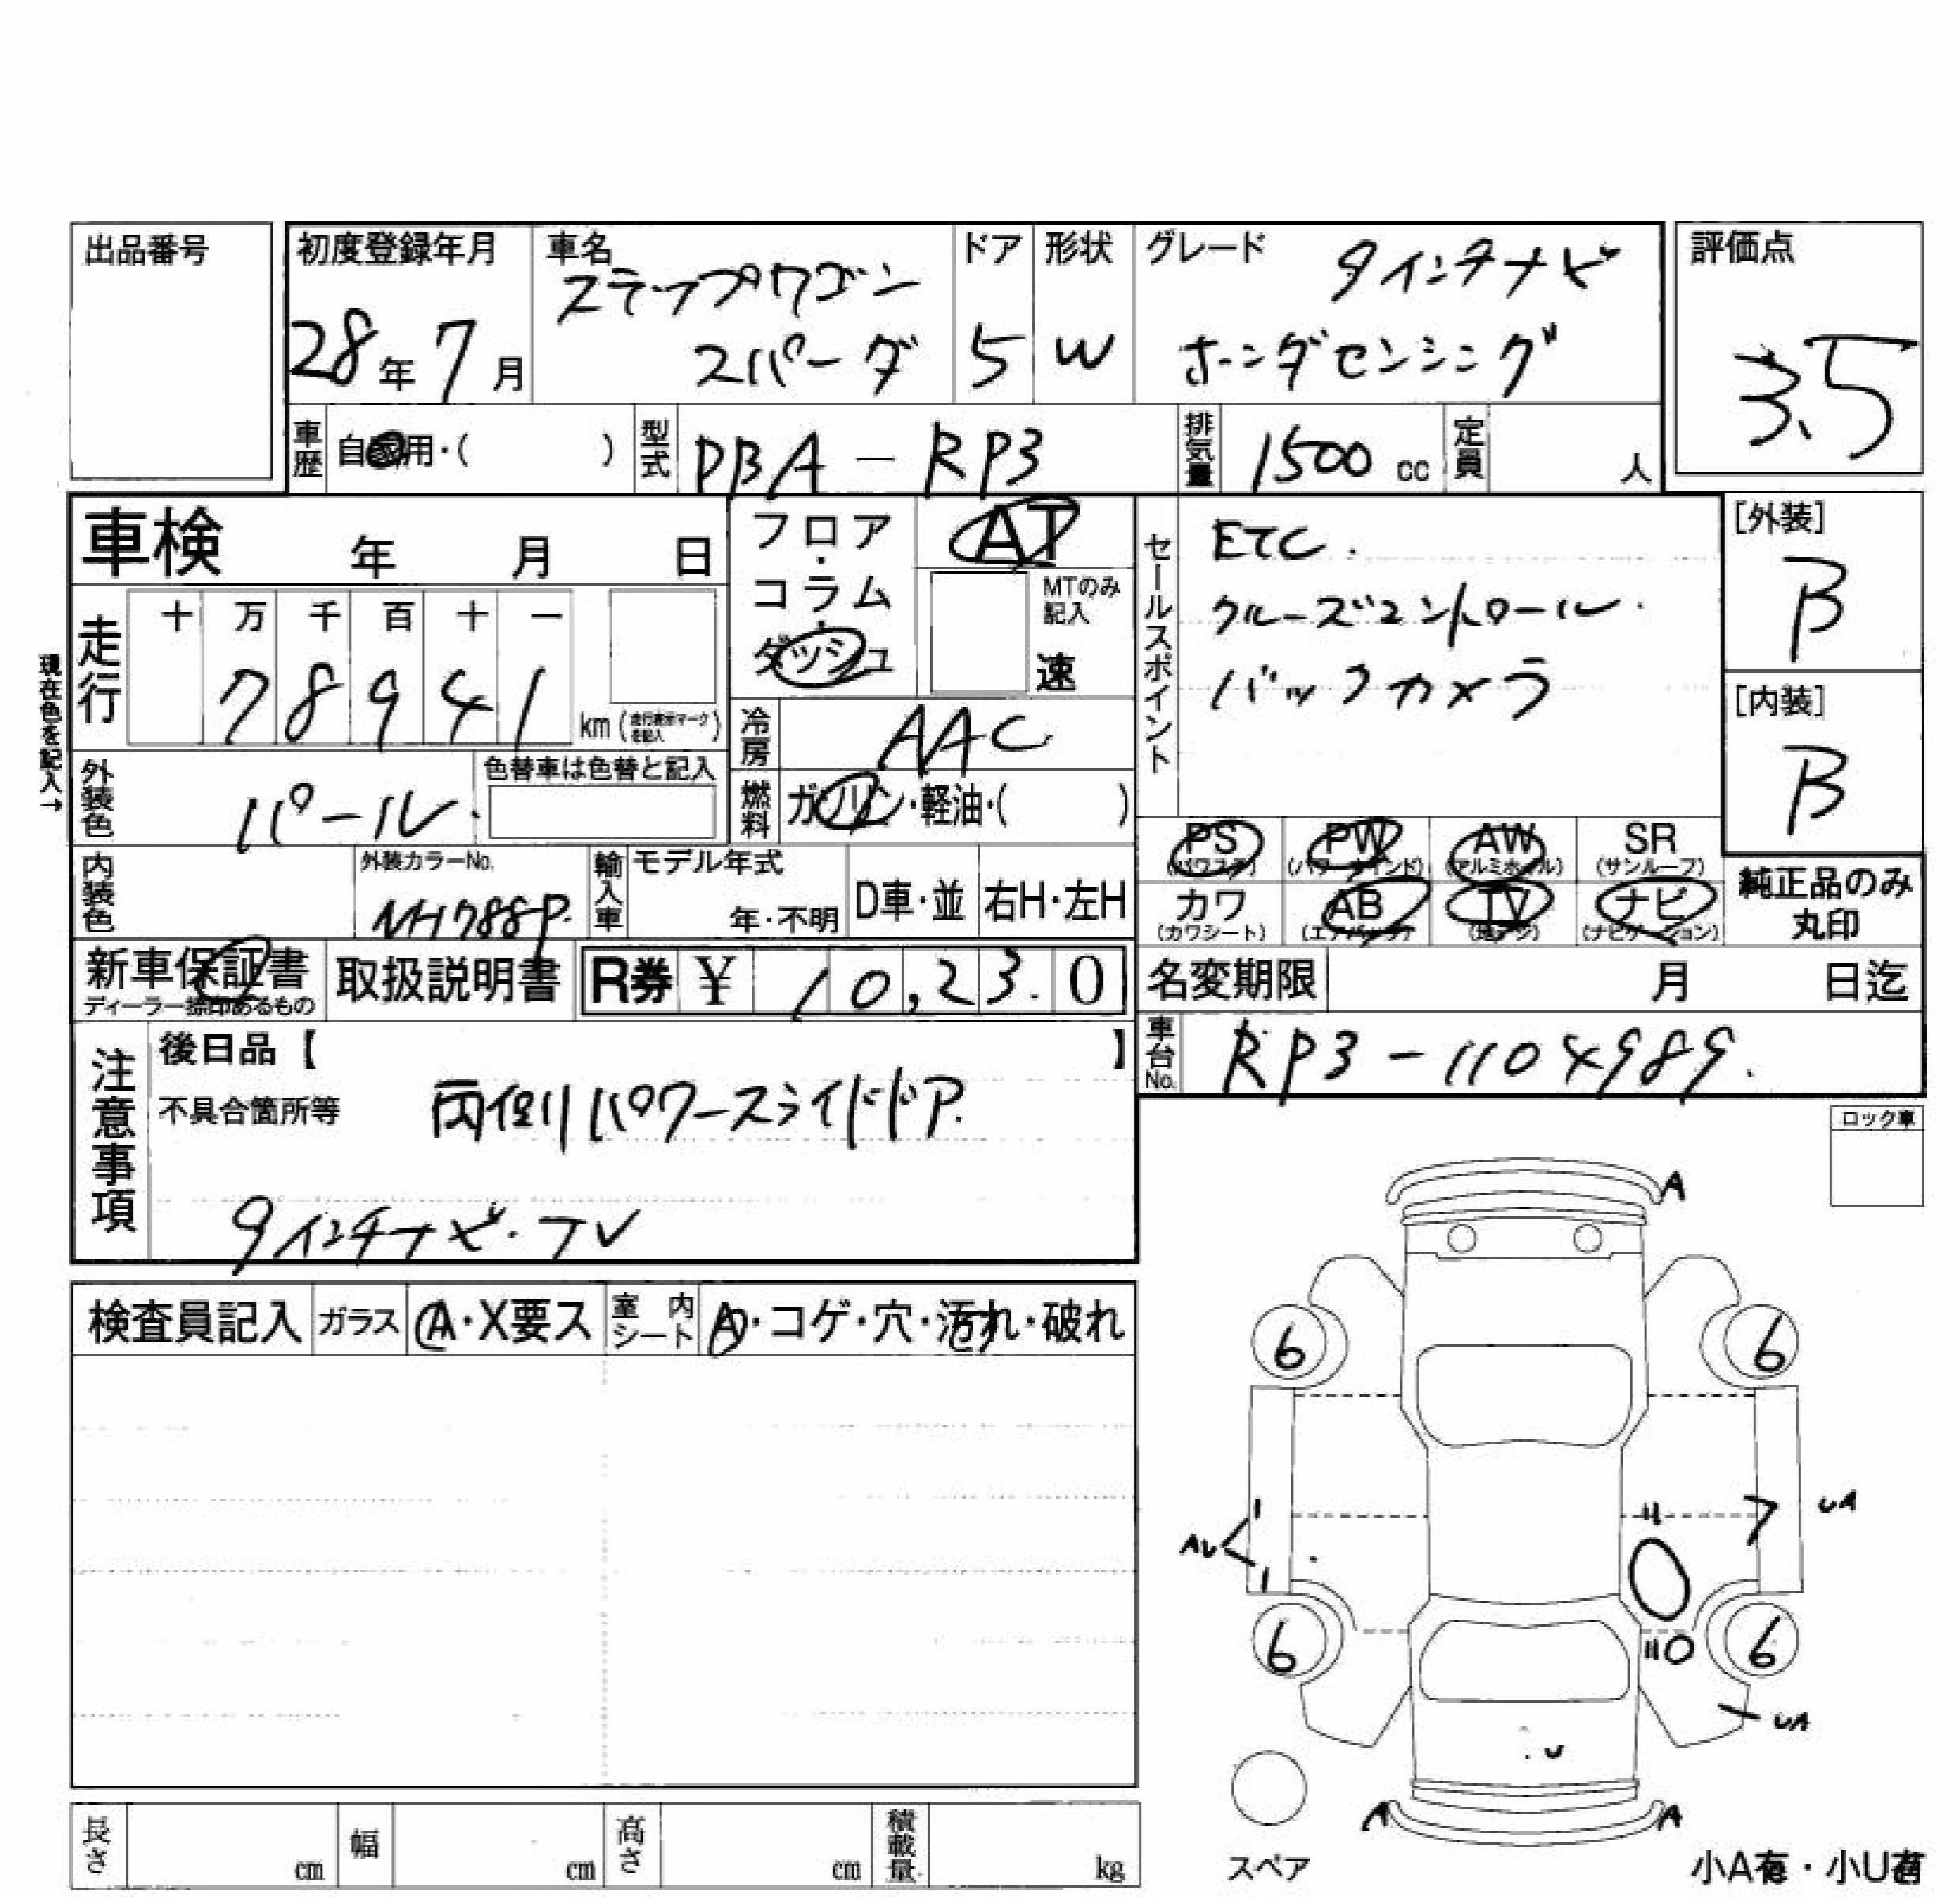 出品番号
初度登録年月 車名 ドア 形状 グレード 評価点
ステップワゴン 9インチナビ
28年7月 スパーダ 5 W ホンダセンシング 3.5
車歴 自家用・( ) 型式 DBA-RP3 排気量 1500 cc 定員 人
車検 年 月 日
フロア・コラム・ダッシュ
AT
MTのみ記入
速
セールスポイント
ETC.
クルーズコントロール.
バックカメラ
[外装]
B
[内装]
B
現在色を記入→
走行 十 万 千 百 十 一
78941 km (走行表示マークを記入)
冷房 AAC
外装色 パール. 色替車は色替と記入
燃料 ガソリン・軽油・( )
内装色 外装カラーNo. NH788P. 輸入車 モデル年式 年・不明 D車・並 右H・左H
PS (パワステ) PW (パワーウインド) AW (アルミホイル) SR (サンルーフ)
カワ (カワシート) AB (エアバック) TV (地デジ) ナビ (ナビゲーション)
純正品のみ丸印
新車保証書 ディーラー捺印あるもの 取扱説明書 R券 ¥ 10,23.0
名変期限 月 日迄
車台No. RP3-1104989.
注意事項
後日品【 】
不具合箇所等 両側パワースライドドア.
9インチナビ.TV
ロック車
検査員記入 ガラス A・X要ス 室内シート A・コゲ・穴・汚れ・破れ
A
6 6
AU
UA
6 6
UA
U
A A
スペア
小A有・小U有
長さ cm 幅 cm 高さ cm 積載量 kg